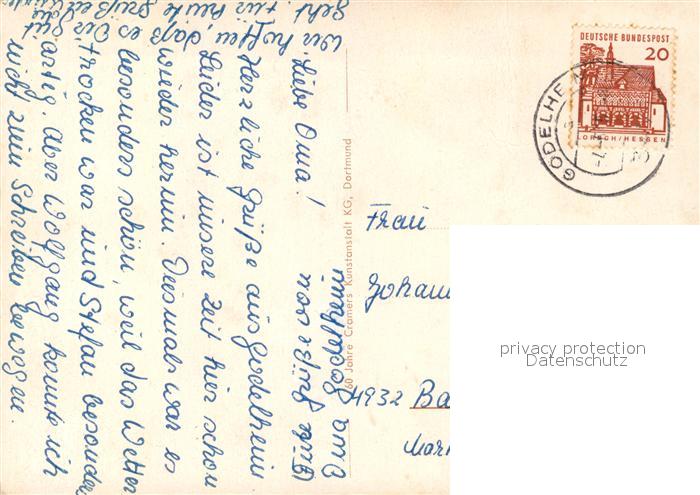 Liebe Oma!
Herzliche Grüße aus Godelheim
Leider ist unsere Zeit hier schon
wieder herum. Diesmal war es
besonders schön, weil das Wetter
trocken war und Stefan besonders
artig. Aber Wolfgang konnte ich
nicht zum Schreiben bewegen.
Wir hoffen daß es Dir gut
geht. Für heute
60 Jahre Cramers Kunstanstalt KG, Dortmund
DEUTSCHE BUNDESPOST
20
LORSCH/HESSEN
GODELHE
Frau
4932 Ba
privacy protection
Datenschutz